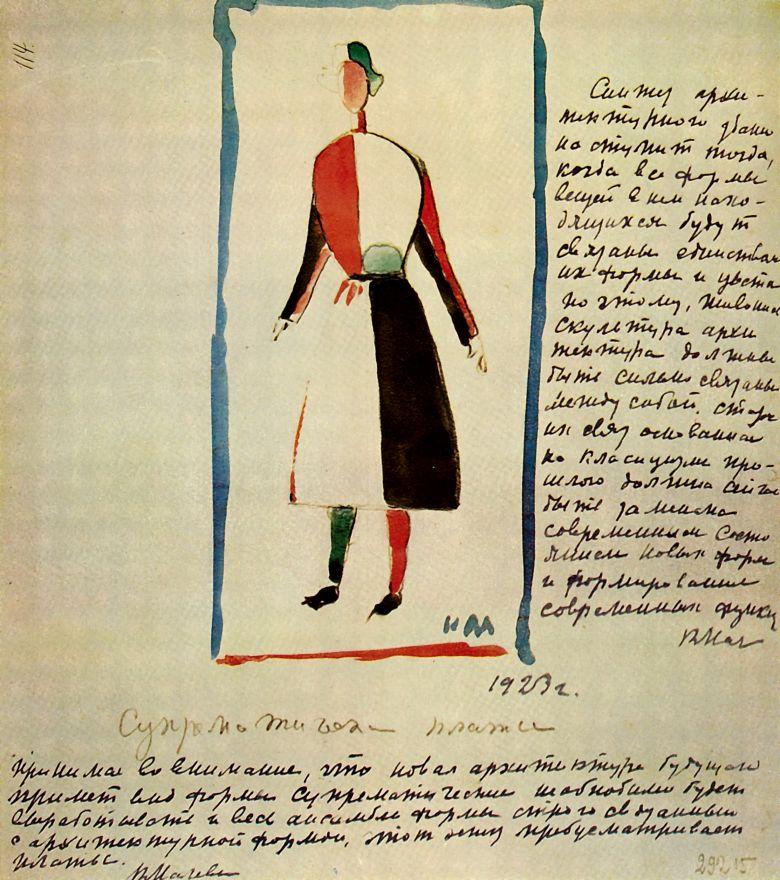 114.
Синтез архи-
тектурного здания
наступит тогда,
когда все формы
вещей в нем нахо-
дящихся будут
связаны единством
их формы и цвета
по этому, живопись
скульптура архи
тектура должны
быть сильно связаны
между собой.
их связь основанная
на класицизме про-
шлого должна
быть заменена
современным состо
янием новых форм
и формирование
современных функц
КМал
КМ
1923 г.
Супрематическ платье
Принимая во внимание, что новая архитектура будущего
примет вид формы супрематические необходимо будет
выработать и весь ансамбль формы строго связанный
с архитектурной формой, этот эскиз предусматривает
платье.
КМалеви
29215